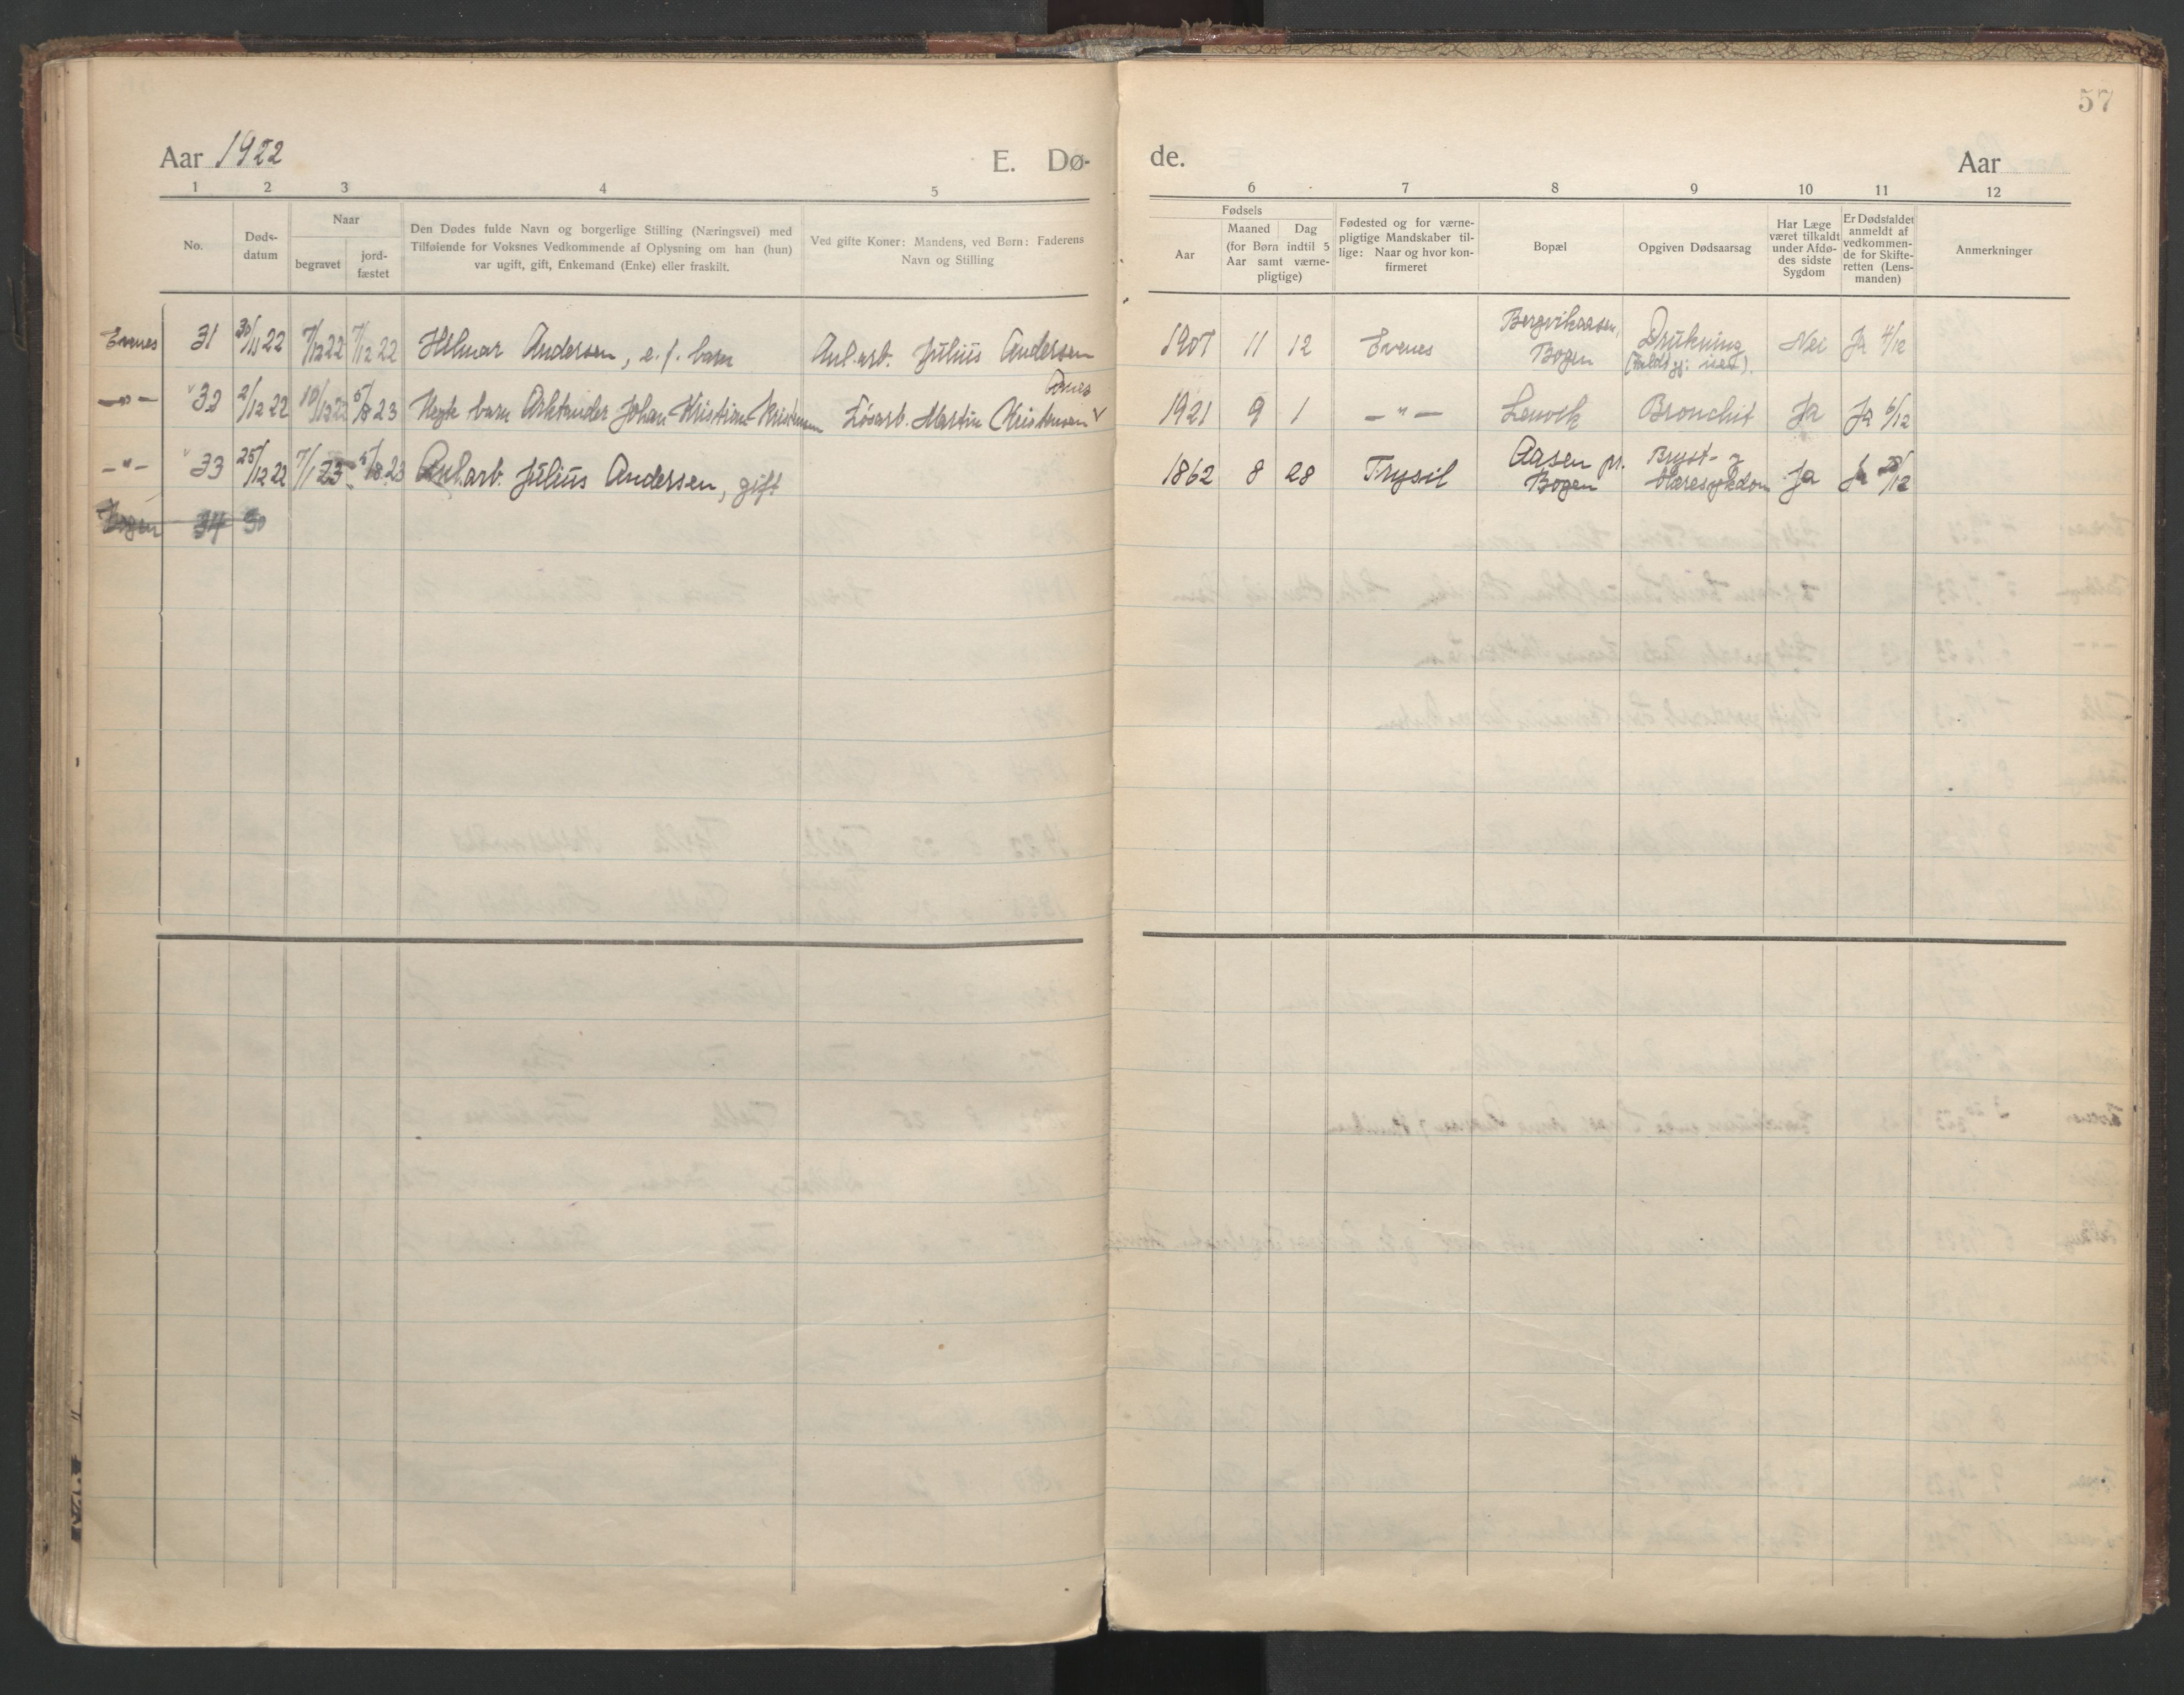 57
Aar 1922 E. Dø- de. Aar
1 2 3 4 5 6 7 8 9 10 11 12
No.
Døds-
datum
Naar
begravet
jord-
fæstet
Den Dødes fulde Navn og borgerlige Stilling (Næringsvei) med
Tilføiende for Voksnes Vedkommende af Oplysning om han (hun)
var ugift, gift, Enkemand (Enke) eller fraskilt.
Ved gifte Koner: Mandens, ved Børn: Faderens
Navn og Stilling
Fødsels
Aar
Maaned Dag
(for Børn indtil 5
Aar samt værne-
pligtige)
Fødested og for værne-
pligtige Mandskaber til-
lige: Naar og hvor kon-
firmeret
Bopæl
Opgiven Dødsaarsag
Har Læge
været tilkaldt
under Afdø-
des sidste
Sygdom
Er Dødsfaldet
anmeldt af
vedkommen-
de for Skifte-
retten (Lens-
manden)
Anmerkninger
Evenes 31 30/11 22 7/12 22 7/12 22 Hilmar Andersen, e.f. barn Anl.arb. Julius Andersen 1907 11 12 Evenes Bergvikaasen, Bogen Drukning Nei Ja 4/12
—"— 32 2/12 22 10/12 22 5/8 23 Uegte barn Arktander Johan Kristian Kristensen Løsarb. Martin Kristensen 1921 9 1 —"— Lenvik Bronchit Ja Ja 6/12
—"— 33 25/12 22 7/1 23 5/8 23 Anl.arb. Julius Andersen, gift 1862 8 28 Trysil Aasen pr. Bogen Bryst- og Ja Ja 28/12
Bogen 34 30